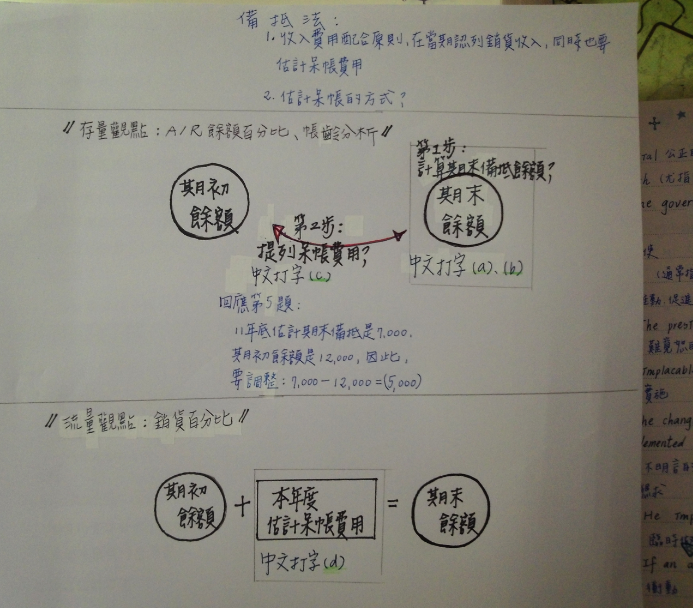 備抵法：
1. 收入費用配合原則，在當期認列銷貨收入，同時也要
估計呆帳費用
2. 估計呆帳的方式？
〃存量觀點：A/R 餘額百分比、帳齡分析〃
期初
餘額
第1步：
計算期末備抵餘額？
期末
餘額
中文打字(a)、(b)
第2步：
提列呆帳費用？
中文打字(c)
回應第5題：
11年底估計期末備抵是7,000，
其期初餘額是12,000，因此，
要調整：7,000-12,000=(5,000)
〃流量觀點：銷貨百分比〃
期初
餘額
+
本年度
估計呆帳費用
=
期末
餘額
中文打字(d)
公正
he gover
The prest
難寬恕的
Implacabl
實施
he chang
lemented
He imp
If an a